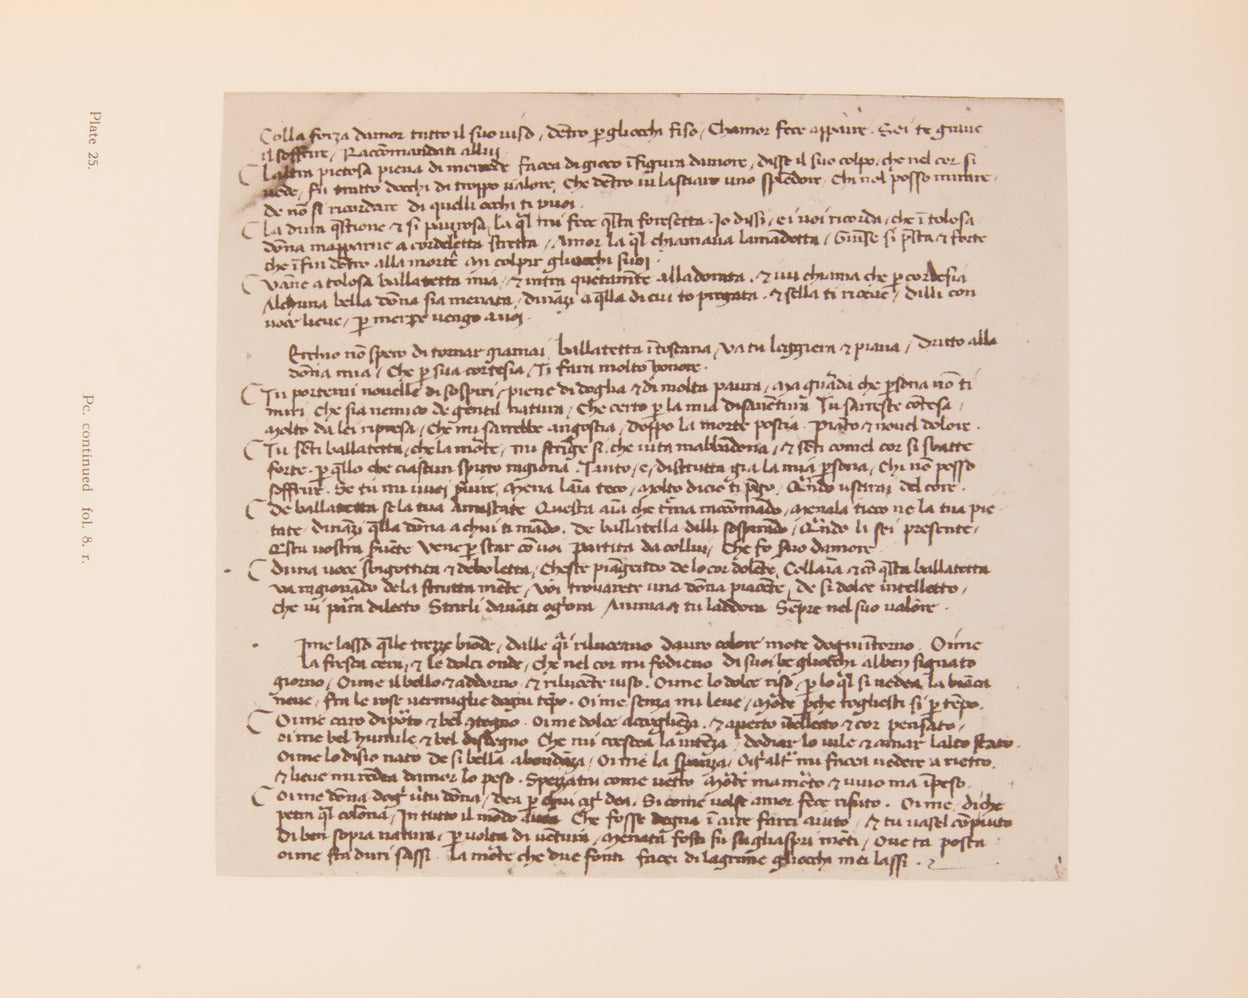 Plate 25.
Pc. continued fol. 8. r.
Colla forza damor tutto il suo uiso / dētro ꝑ gliocchi fiso / Chamor fece apparire . Sei te graue
il soffrire / Raccōmandati allui
Laltra pietosa piena di merzede facea di gioco ī figura damore / disse il suo colpo, che nel cor si
uede, fu tratto docchi di troppo ualore, Che dētro ui lasciaro uno splēdore, Chi nol posso mirare .
de nō si ricordare di quelli occhi ti puoi .
La dura q̄stione & si paurosa, la q̄l mi fece q̄sta foresetta . Io dissi, e i uoi ricorda, che ī tolosa
dōna mapparue acordelletta stretta / Amor la q̄l chiamaua lamādetta / Giūse si p̄sta & forte
che ī fin dētro alla morte mi colpir gliocchi suoi .
Vāne a tolosa ballatetta mia / & intra quetamēte alla dorata . & iui chiama che ꝑ cortesia
Alchuna bella dōna sia menata, dināzi a q̄lla di cui to pregata . & sella ti riceue / dilli con
uoce lieue / ꝑ merze uengo a uoi .
Perchio nō spero di tornar giamai ballatetta ī toscana / Va tu leggiera & piana / Dritto alla
dōna mia / Che ꝑ sua cortesia / Ti fara molto honore .
Tu porterai nouelle di sospiri / piene di doglia & di molta paura / Ma guarda che ꝑsona nō ti
miri Che sia nemico de gentil natura / Che certo ꝑ la mia disauētura Tu sareste cōtesa /
Molto da lei ripresa / Che mi sarebbe angoscia / doppo la morte poscia . Piāto & nouel dolore .
Tu sēti ballatetta / che la morte mi strīge si, che uita mabbādona / & sēti comel cor si sbatte
forte . ꝑ q̄llo che ciascun spirito ragiona . Tanto, e, distrutta gia la mia ꝑsona, Chi nō posso
soffrire . Se tu mi uuoi seruire, Mena laīa teco / Molto di cio ti p̄go . Q̄n̄do uscirai del core .
de ballatetta se la tua amistate Questa aīa che trema raccōmādo / Menala teco ne la tua pie
tate . dināzi q̄lla dōna a chui ti mādo . de ballatella dilli sospirando / Q̄n̄do li sei presente /
Q̄sta uostra seruēte Vene ꝑ star cō uoi Partita da collui / Che fo suo damore
di una uoce sbigottita & deboletta / Cheste piāgendo de lo cor dolēte, Collaīa & cō q̄sta ballatetta
va ragionādo dela strutta mēte / Voi trouarete una dōna piacēte / de si dolce ītelletto /
che ui para dilecto Starli dauāti ognora Anima & tu ladora Sēpre nel suo ualore .
Oime lasso q̄lle trezze biōde / dalle q̄i riluceuano dauro colore mote dogni ītorno . Oime
la fresca cera / & le dolci onde / Che nel cor mi fedieno di suoi be gliocchi al ben signato
giorno / Oime il bello & addorno / & rilucēte uiso . Oime lo dolce riso / ꝑ lo q̄l si uedea la biāca
neue / fra le rose uermiglie dogni tēpo . Oi me senza mi leue / Morte ꝑche togliesti si ꝑ tēpo .
Oi me caro diporto & bel ꝯtegno . Oi me dolce accoglieza / & aperto ītelletto & cor pensato /
oi me bel humile & bel disdegno Che mi crescea la intēza / dodiar lo uile & amar lalto stato .
Oime lo disio nato de si bella abondāza / Oi me la speranza / Og̃ alt mi facea uedere a rietro /
& lieue mi redea damor lo peso . Spezzatai come uetro Morte mamorto & uiuo ma īpeso .
Oi me dōna dog̃ uirtu dōna / dea ꝑ chui og̃ dea / Si come uolse amor fece rifiuto . Oi me / di che
petra q̄l colōna / In tutto il mōdo Che fosse degna ī aire farei aiuto / & tu uasel cōpiuto
Di ben sopra natura / ꝑ uolta di uētura / Menata fosti fu su gliaspri mōti / Oue ta posta
oi me fra duri sassi . La morte che due fonti facei di lagrime gliocchi mei lassi .